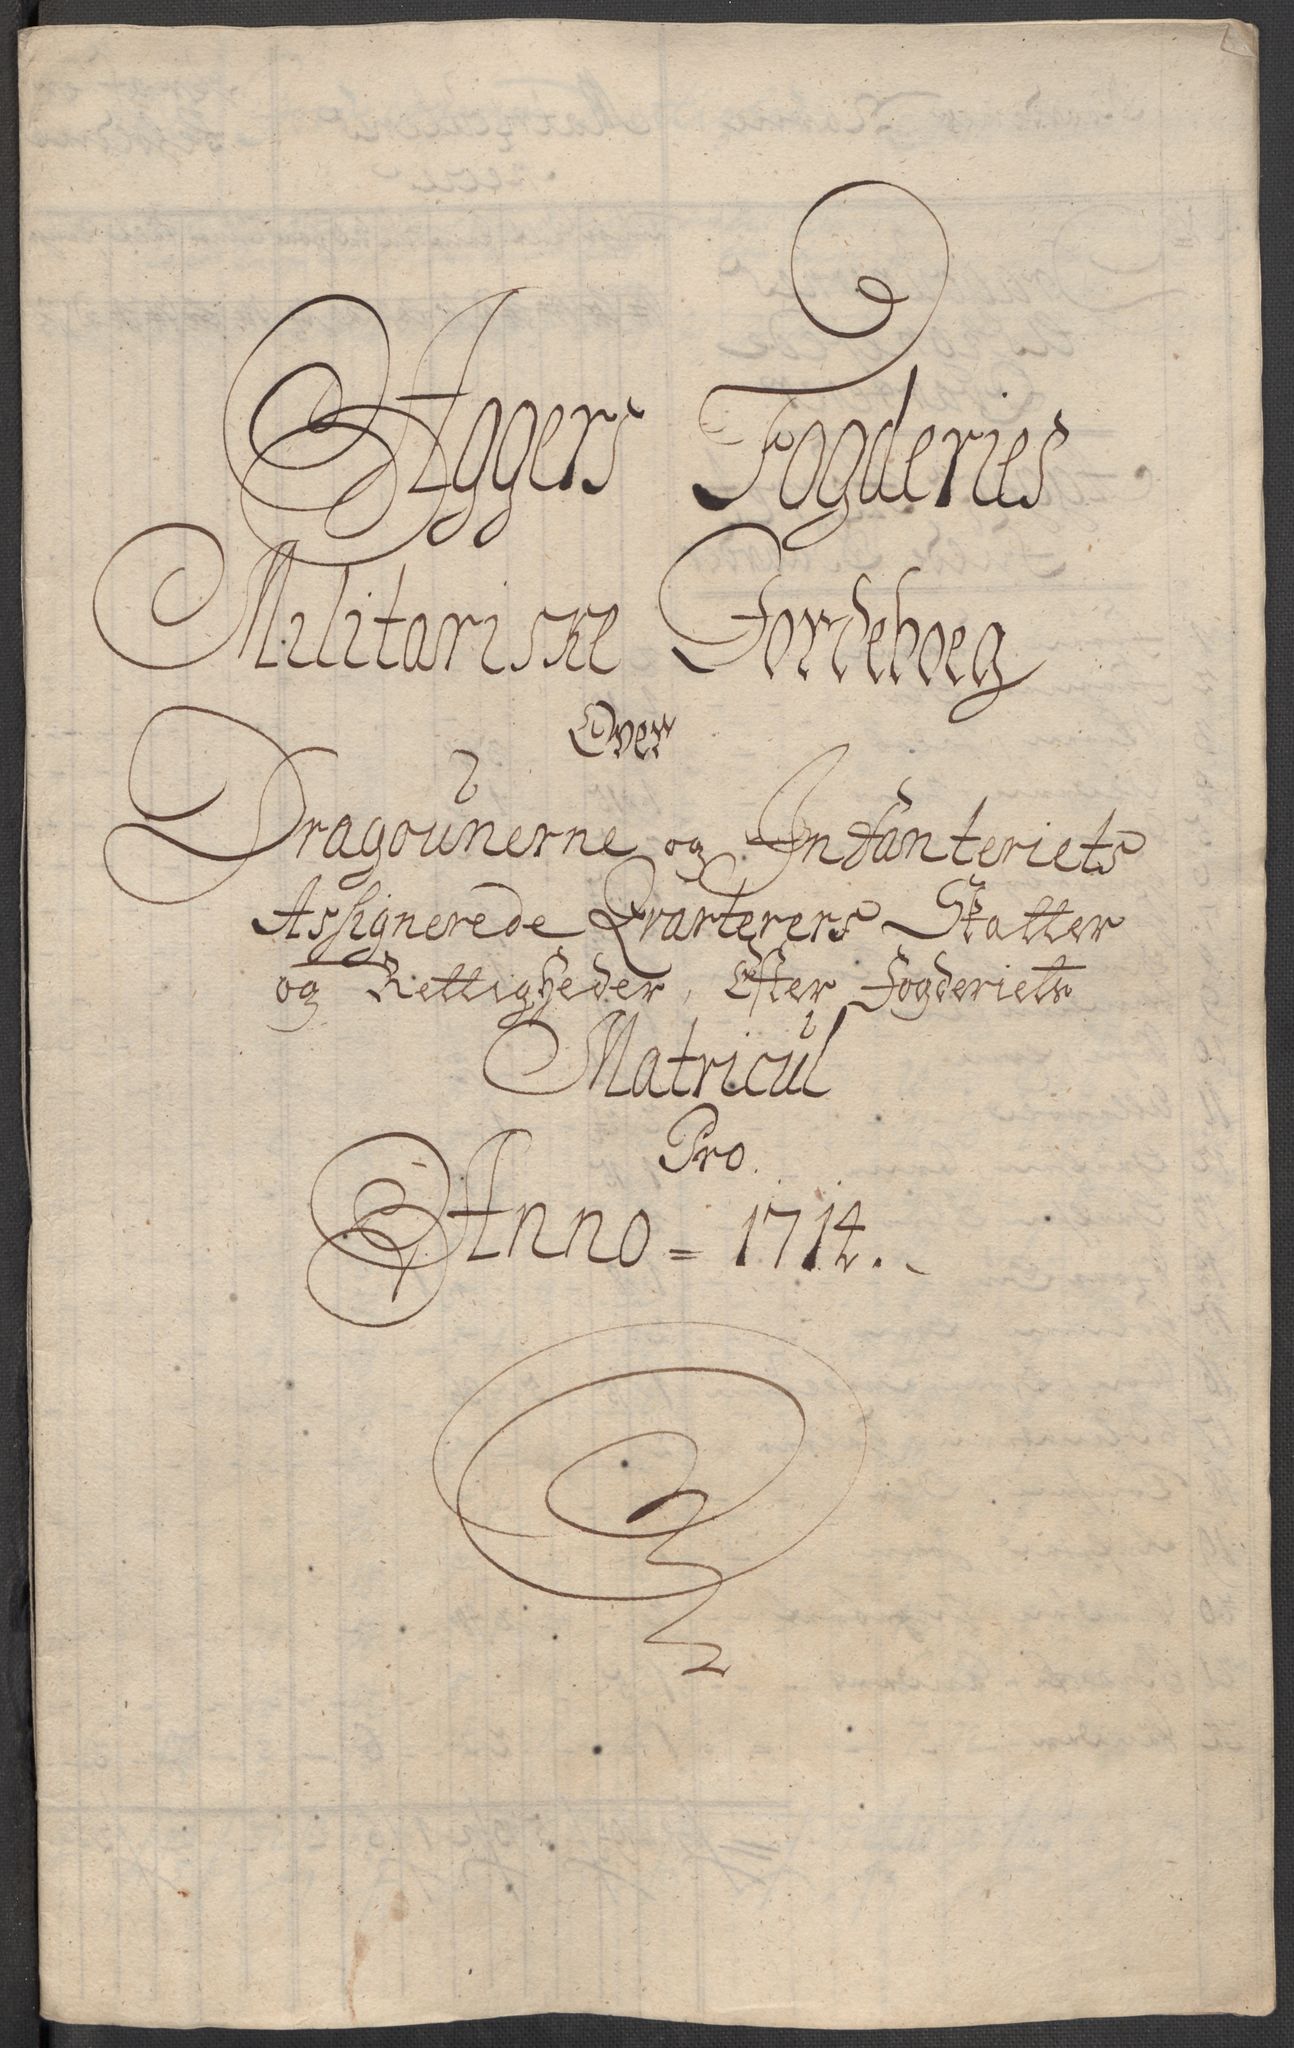 Aggers Fogderies
Militariske Jordeboeg
Over
Dragounerne og Infanteriets
Assignerede Qvarterers Skatter
og Rettigheder, Efter Fogderiets
Matricul
Pro.
Anno = 1714.